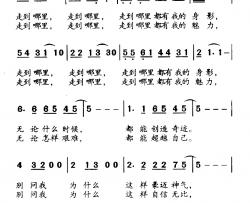 走到哪里，走到哪里，走到哪里都有我的身影，
走到哪里，走到哪里，走到哪里都有我的魅力，
54 31 10 22 13 30 55 61 44 31 2 1. 1-
走到哪里，走到哪里，走到哪里都有我的身影，
走到哪里，走到哪里，走到哪里都有我的魅力，
6. 6 65 45 5--- 1. 2 15 45 5---
无论什么时候，都能创造奇迹。
无论怎样艰难，都能超越自己。
4 32 00 2 12 00 2. 2 22 75 5---
别问我为什么这样豪迈神气，
别问我为什么这样自信无比，